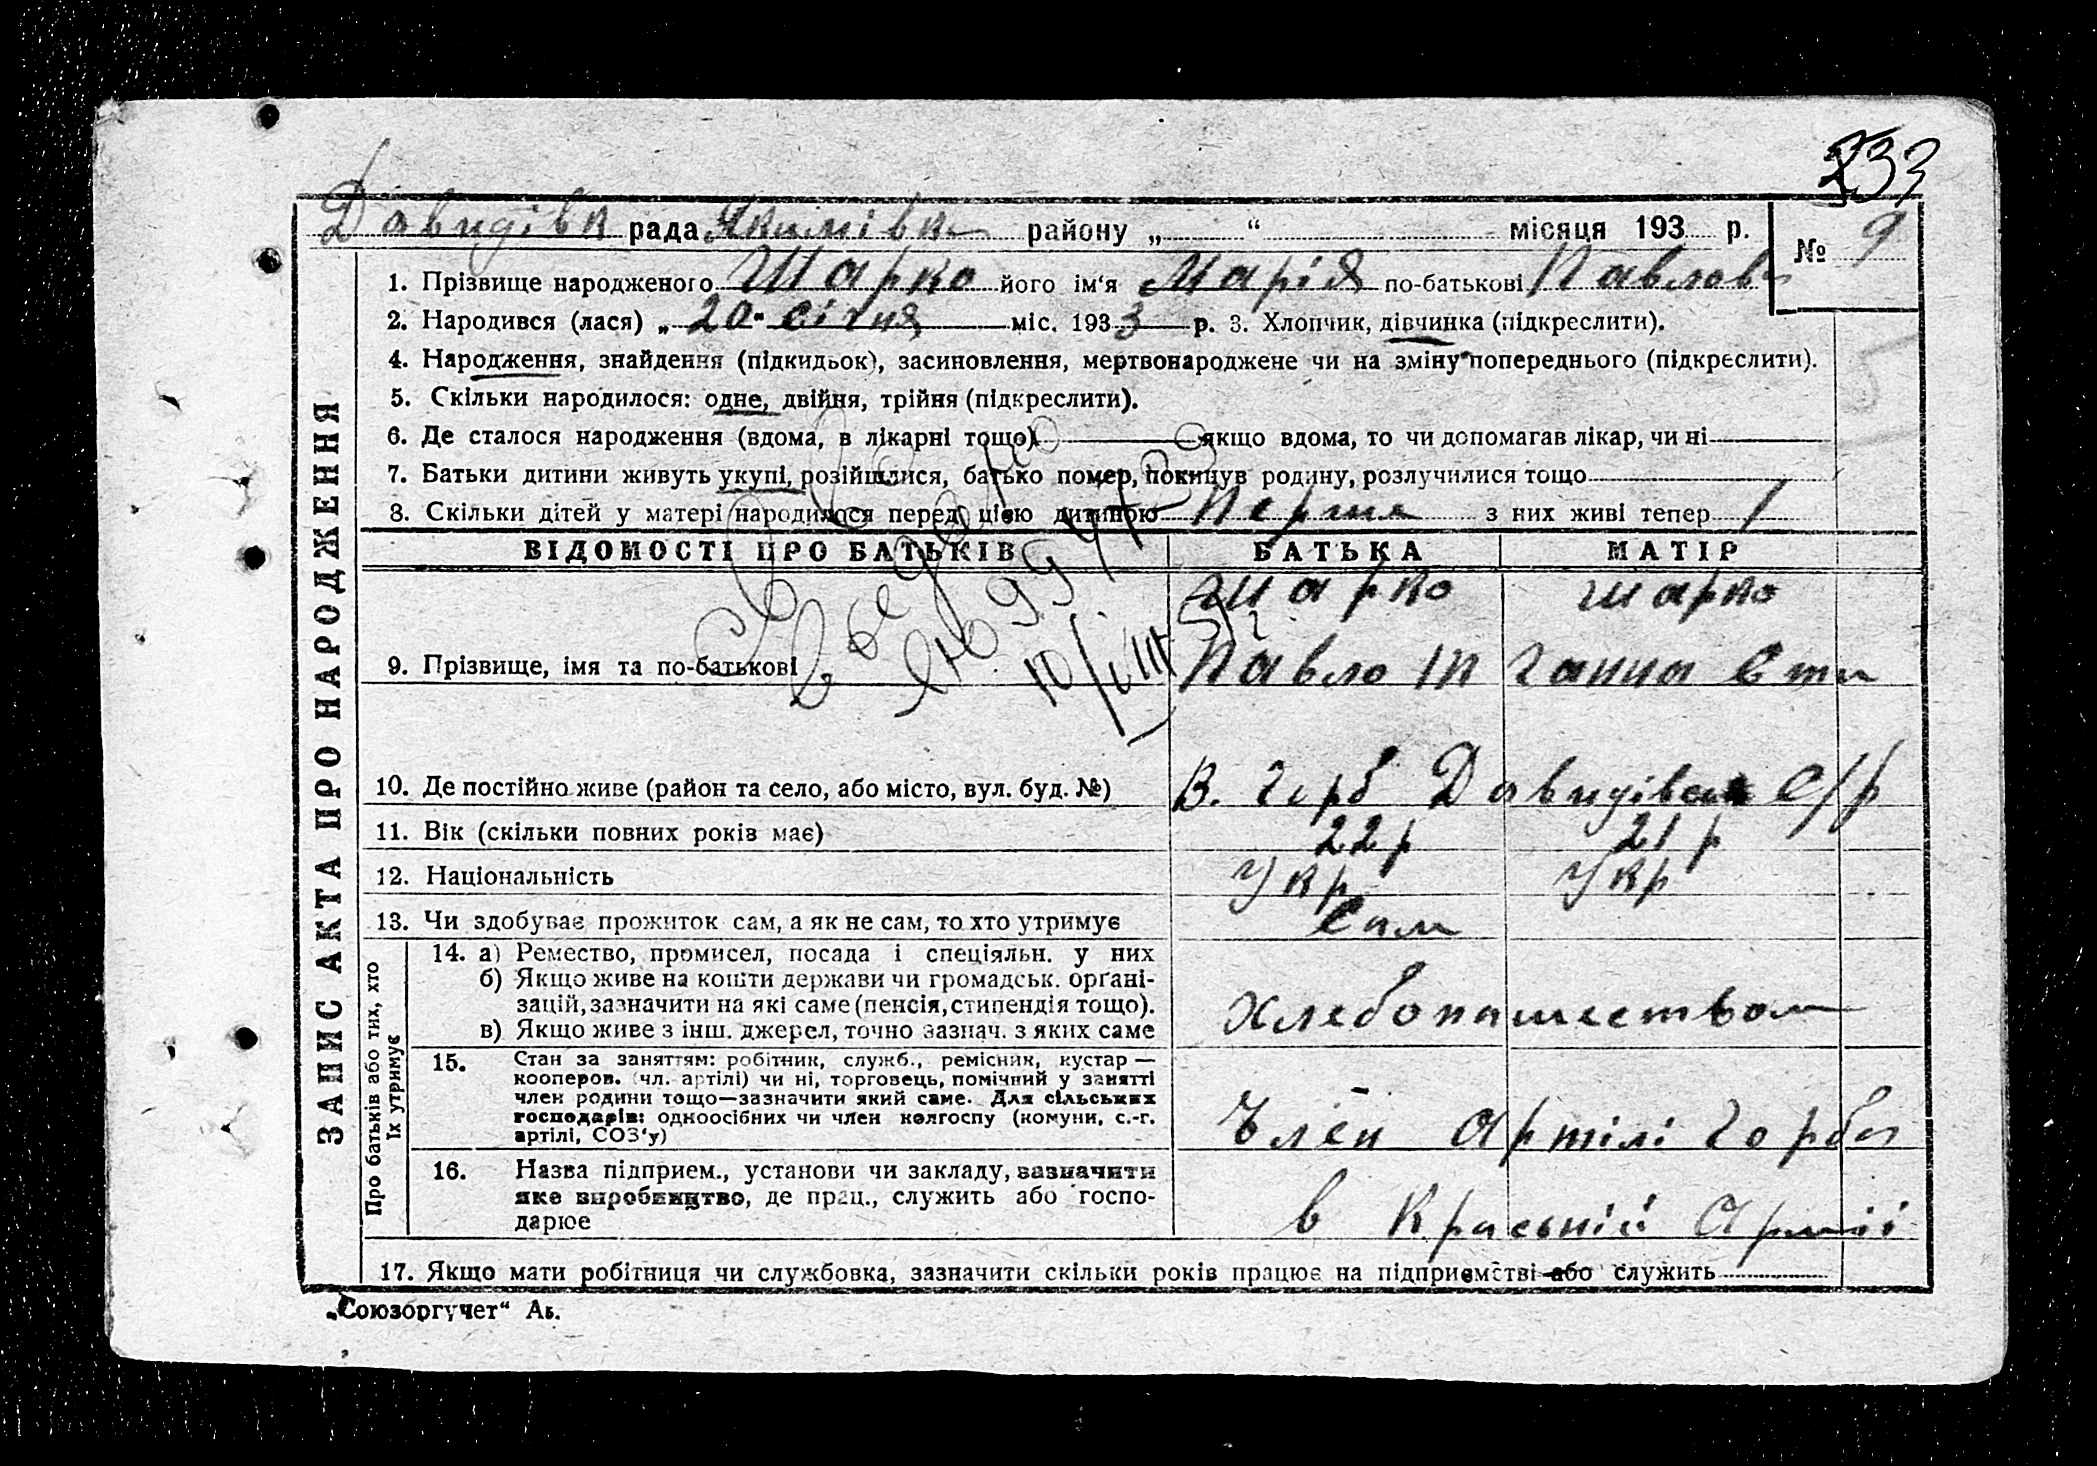 233
Давидівк рада Якимівк району „ “ місяця 193 р.
№ 9
1. Прізвище народженого Шарко його ім‘я Марія по-батькові Павлов
2. Народився (лася) „ 20 січня міс. 1933 р. 3. Хлопчик, дівчинка (підкреслити).
4. Народження, знайдення (підкидьок), засиновлення, мертвонароджене чи на зміну попереднього (підкреслити).
5. Скільки народилося: одне, двійня, трійня (підкреслити).
6. Де сталося народження (вдома, в лікарні тощо) якщо вдома, то чи допомагав лікар, чи ні
7. Батьки дитини живуть укупі, розійшлися, батько помер, покинув родину, розлучилися тощо
8. Скільки дітей у матері народилося перед цією дитиною Перша з них живі тепер 1
ЗАПИС АКТА ПРО НАРОДЖЕННЯ
ВІДОМОСТІ ПРО БАТЬКІВ БАТЬКА МАТІР
Шарко Шарко
9. Прізвище, імя та по-батькові Павло Ганна
10. Де постійно живе (район та село, або місто, вул. буд. №) В. Горб С/р
11. Вік (скільки повних років має) 22 р 21 р
12. Національність Укр Укр
13. Чи здобуває прожиток сам, а як не сам, то хто утримує Сам
Про батьків або тих, хто їх утримує
14. а) Ремество, промисел, посада і спеціяльн. у них
б) Якщо живе на кошти держави чи громадськ. орґані-
зацій, зазначити на які саме (пенсія, стипендія тощо).
в) Якщо живе з інш. джерел, точно зазнач. з яких саме
Хлебопашеством
15. Стан за заняттям: робітник, служб., ремісник, кустар —
кооперов. (чл. артілі) чи ні, торговець, помічний у занятті
член родини тощо—зазначити який саме. Для сільських
господарів: одноосібних чи член колгоспу (комуни, с.-г.
артілі, СОЗ‘у)
Члєн Артілі Горба
16. Назва підприєм., установи чи закладу, зазначити
яке виробництво, де прац., служить або госпо-
дарює
в Красьній Армії
17. Якщо мати робітниця чи службовка, зазначити скільки років працює на підприємстві або служить
„Союзоргучет“